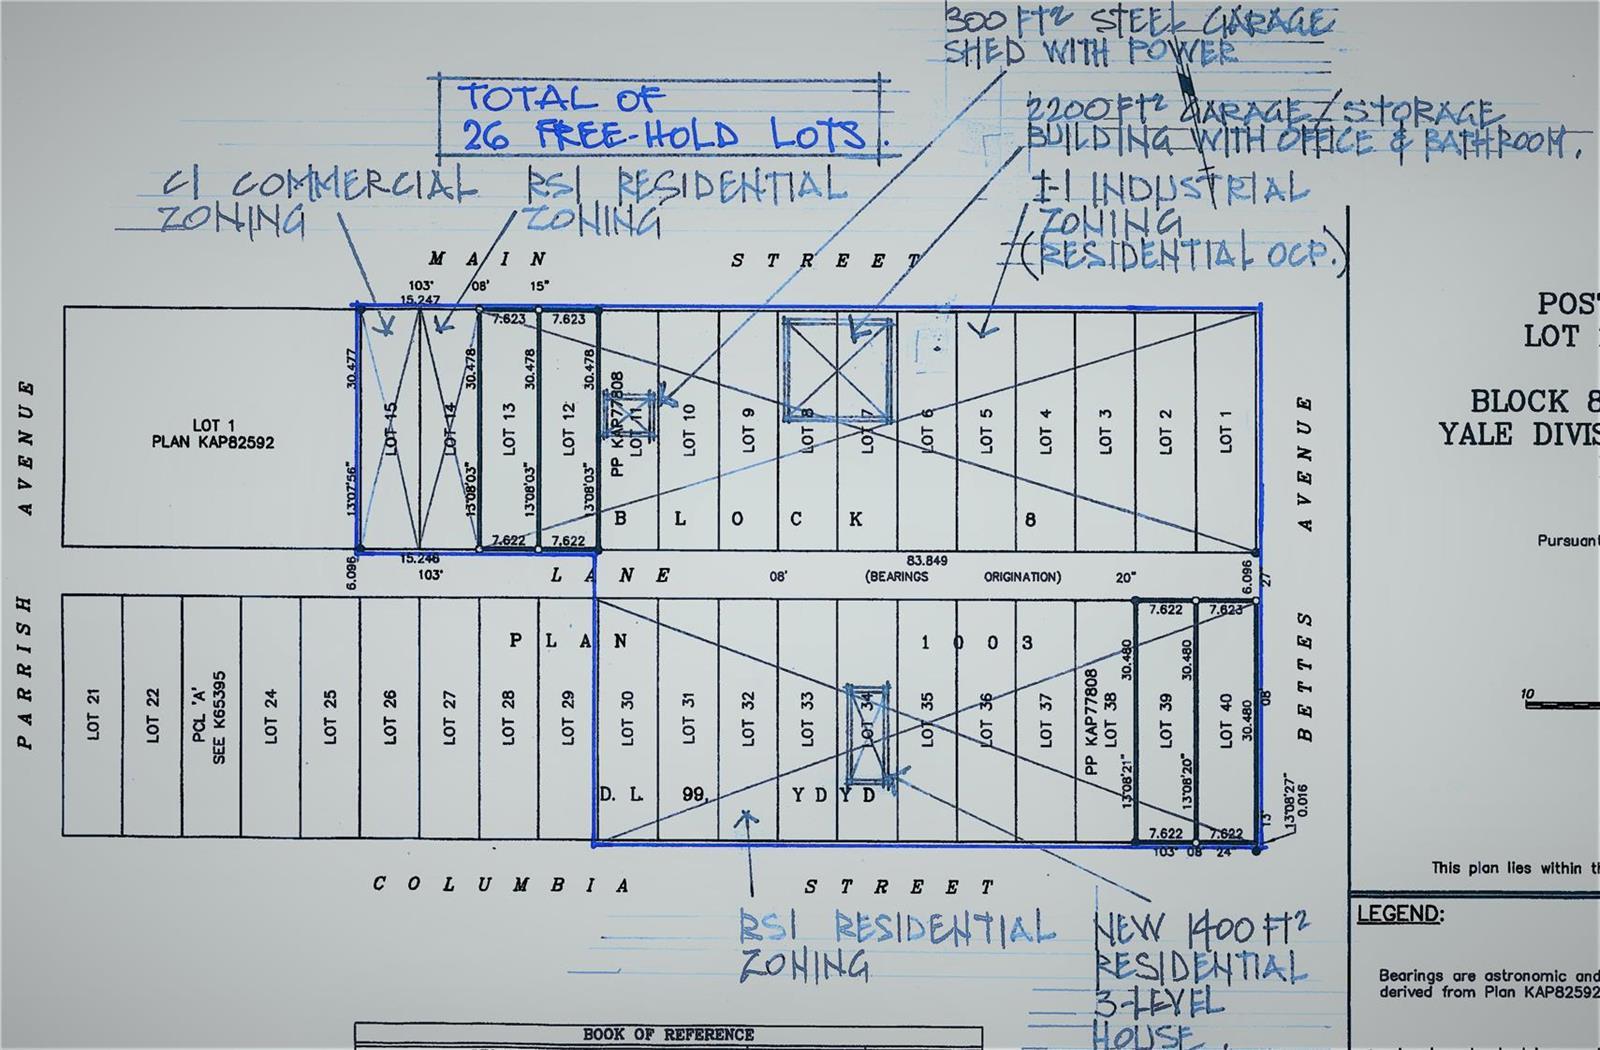 300 FT² STEEL GARAGE
SHED WITH POWER
TOTAL OF
26 FREE-HOLD LOTS.
2200 FT² GARAGE/STORAGE
BUILDING WITH OFFICE & BATHROOM.
C1 COMMERCIAL
ZONING
RS1 RESIDENTIAL
ZONING
I-1 INDUSTRIAL
ZONING
(RESIDENTIAL OCP.)
MAIN STREET
103° 08' 15"
15.247
7.623 7.623
30.477
30.478
30.478
30.478
PARRISH AVENUE
LOT 1
PLAN KAP82592
LOT 15
LOT 14
LOT 13
LOT 12
PP KAP77808
LOT 11
LOT 10
LOT 9
LOT 8
LOT 7
LOT 6
LOT 5
LOT 4
LOT 3
LOT 2
LOT 1
13°07'56"
13°08'03"
13°08'03"
13°08'03"
BLOCK 8
7.622 7.622
15.246
83.849
6.096
103°
LANE
08'
(BEARINGS ORIGINATION)
20"
6.096
27"
BETTES AVENUE
7.622 7.623
PLAN 1003
LOT 21
LOT 22
PCL 'A'
SEE K65395
LOT 24
LOT 25
LOT 26
LOT 27
LOT 28
LOT 29
LOT 30
LOT 31
LOT 32
LOT 33
LOT 34
LOT 35
LOT 36
LOT 37
PP KAP77808
LOT 38
LOT 39
LOT 40
30.480
30.480
30.480
08'
13°
13°08'21"
13°08'20"
13°08'27"
0.016
D.L. 99, YDYD
7.622 7.622
103° 08' 24"
COLUMBIA STREET
RS1 RESIDENTIAL
ZONING
NEW 1400 FT²
RESIDENTIAL
3-LEVEL
HOUSE.
BOOK OF REFERENCE
POS
LOT
BLOCK 8
YALE DIVIS
Pursuant
10
This plan lies within th
LEGEND:
Bearings are astronomic and
derived from Plan KAP82592